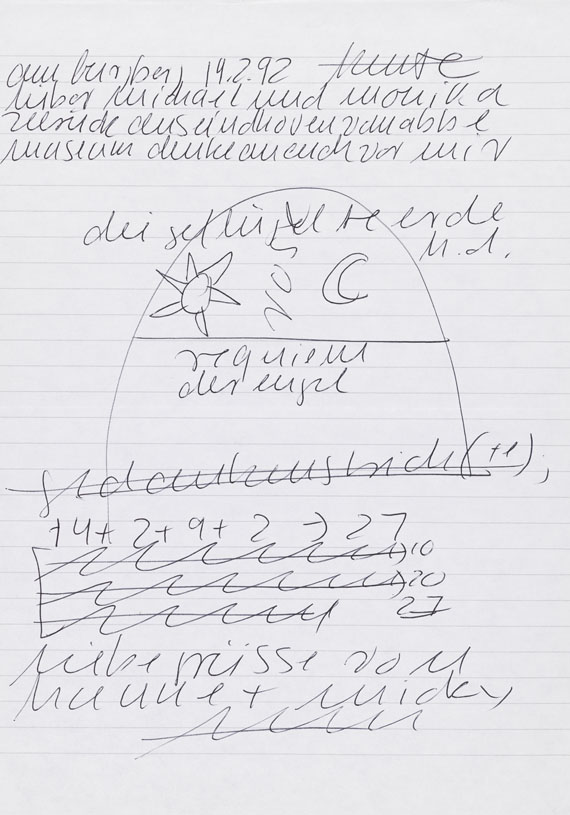 am burgberg 14.2.92 heute
lieber michael und monika
zurück aus eindhoven van abbe
museum denke an euch vor mir
die geflügelte erde
requiem
der engel
gedankenstrich(+e),
14+ 2+ 9+ 2 → 27
10
20
27
liebe grüsse von